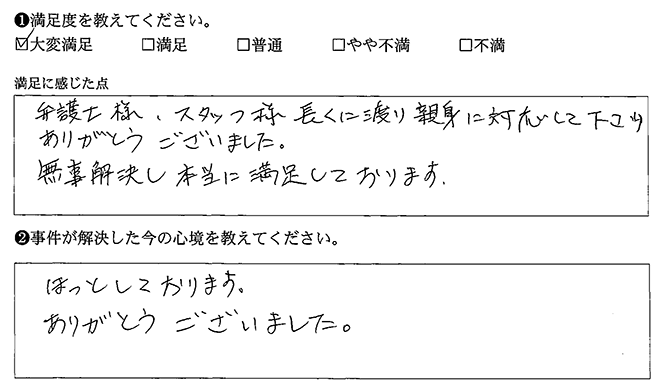 ❶満足度を教えてください。
☑大変満足 □満足 □普通 □やや不満 □不満
満足に感じた点
弁護士様、スタッフ様 長くに渡り親身に対応して下さり
ありがとうございました。
無事解決し本当に満足しております。
❷事件が解決した今の心境を教えてください。
ほっとしております。
ありがとうございました。